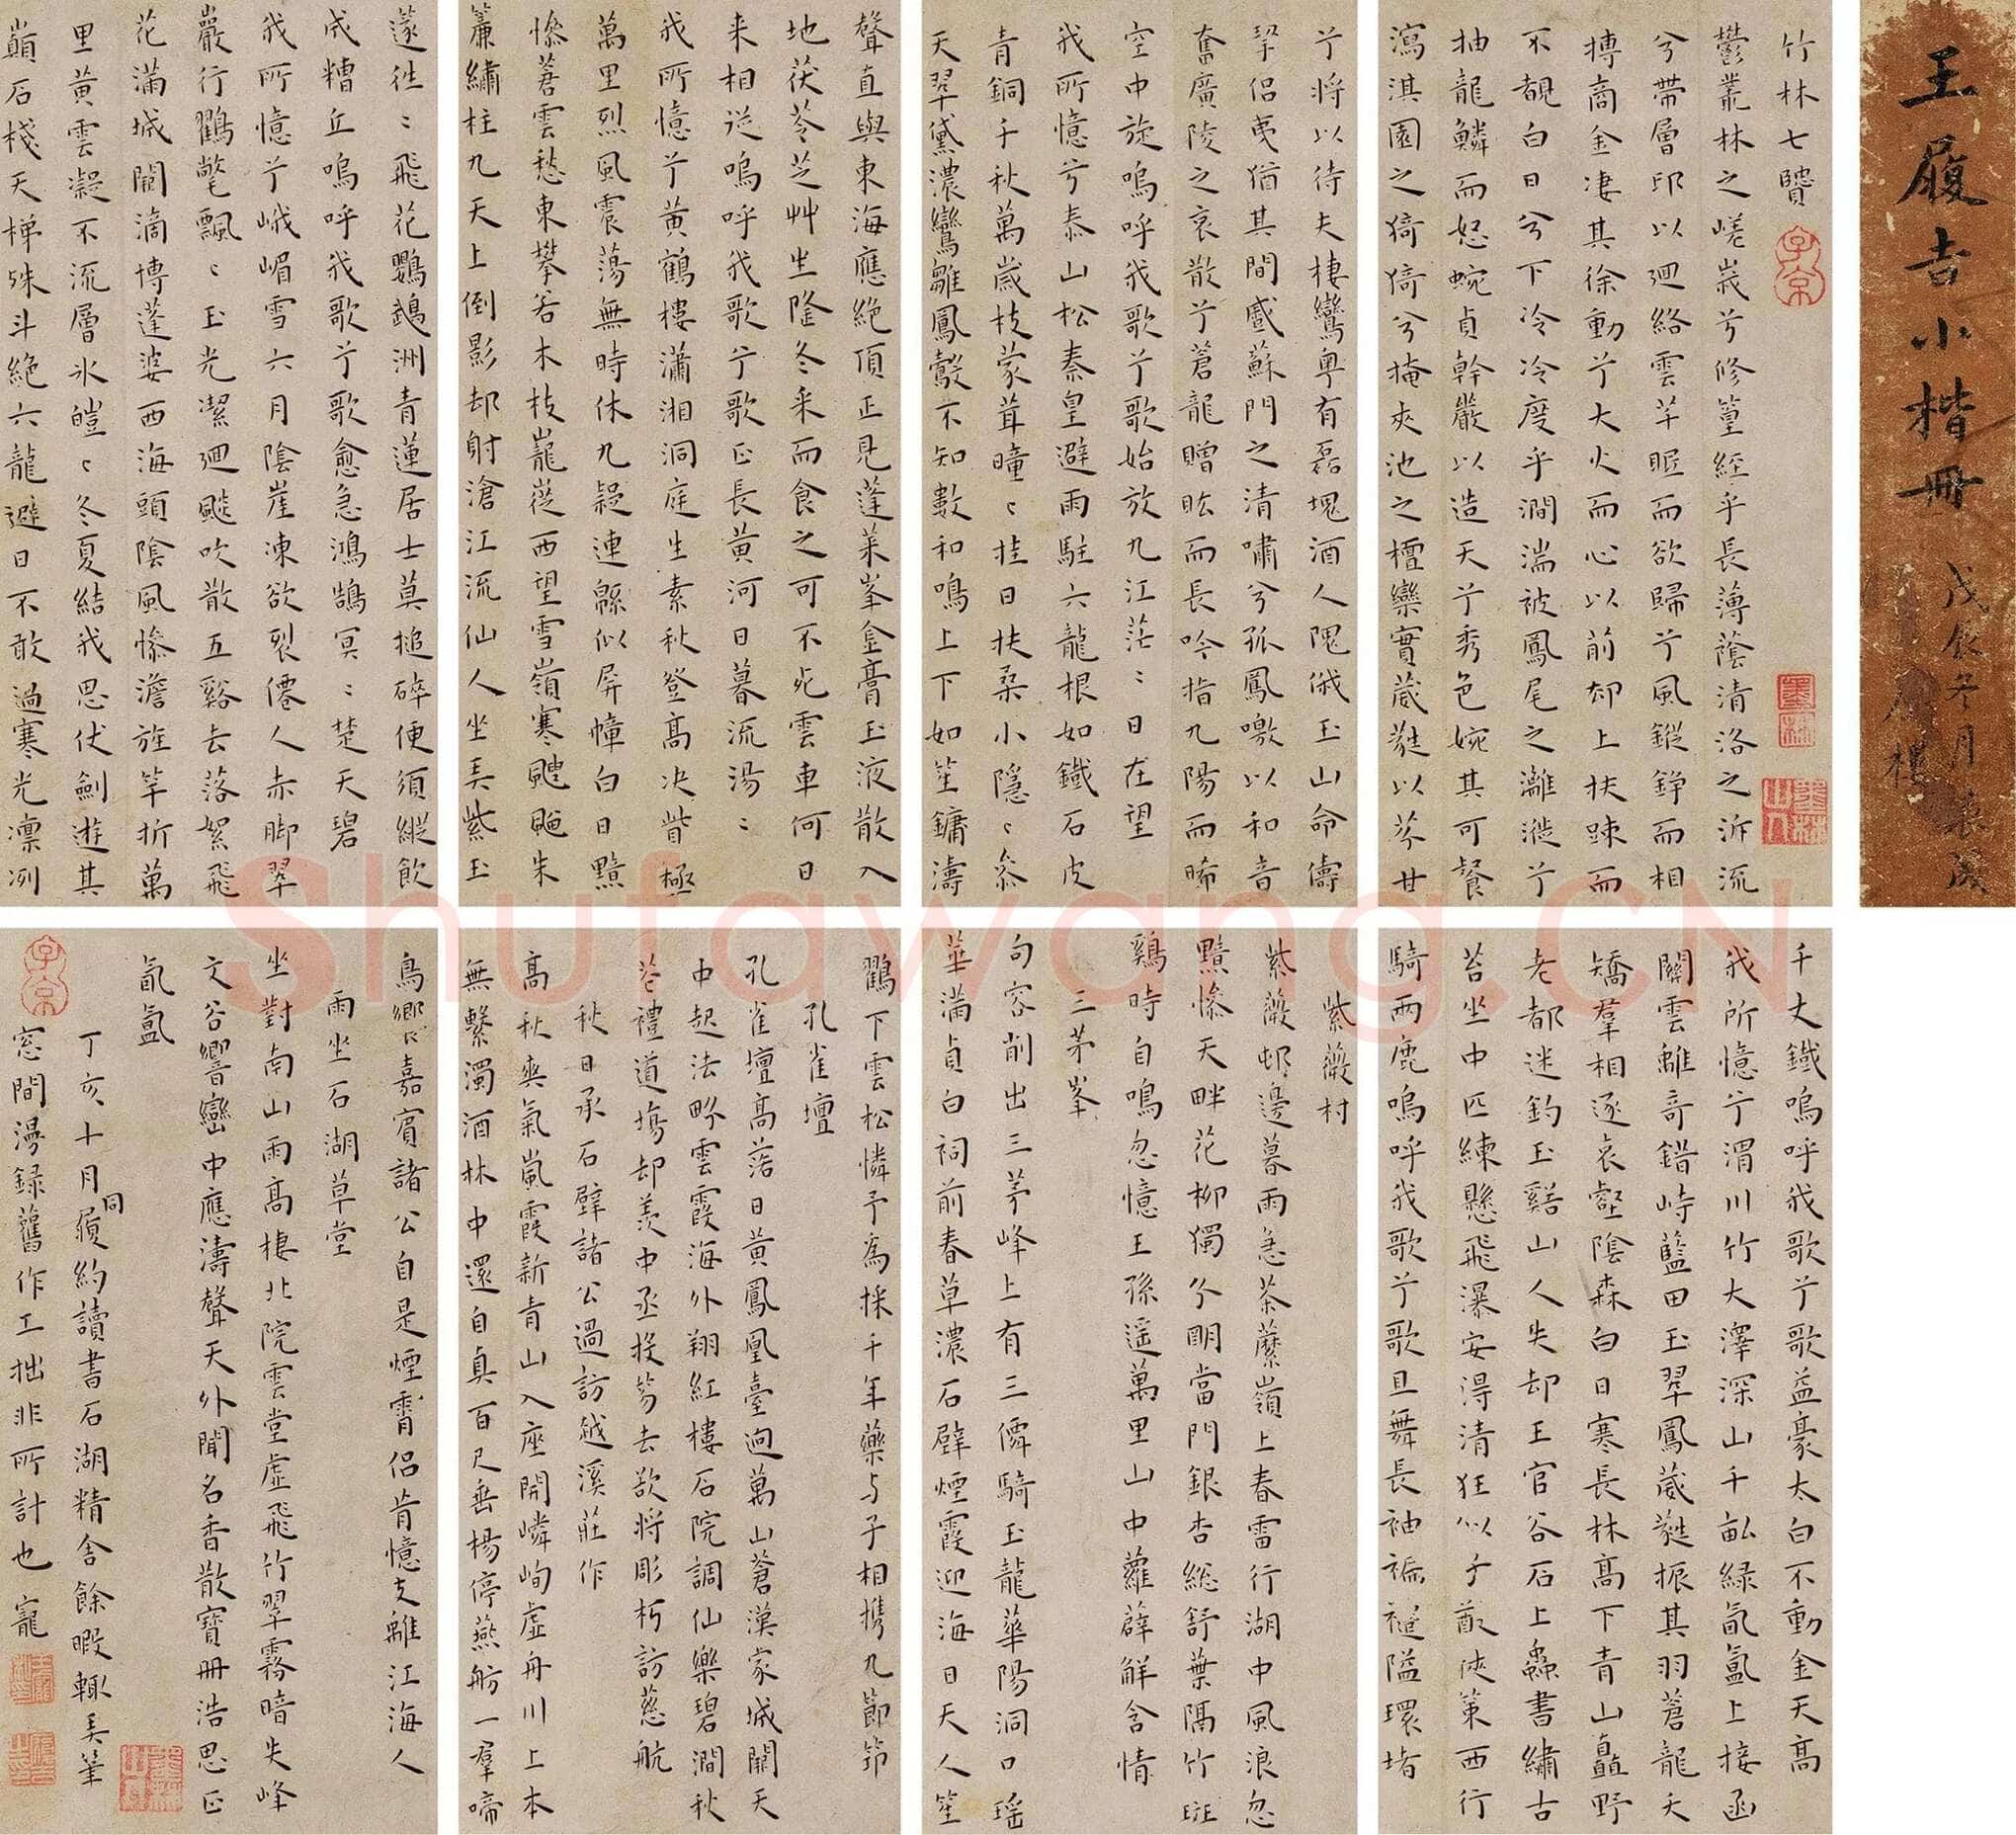 王履吉小楷冊
戊辰冬月
竹林七賢
鬱叢林之嵯峩兮修篁經乎長薄蔭清洛之沂流
兮帶層邱以迴絡雲芊眠而欲歸兮風鏦錚而相
搏商金凄其徐動兮大火而心以前却上扶踈而
不覩白日兮下泠泠度乎澗湍被鳳尾之灕漇兮
抽龍鱗而怒蜿貞幹嚴以造天兮秀色婉其可餐
瀉淇園之猗猗兮掩夾池之檀欒實葳蕤以芬甘
兮將以待夫棲鸞粵有磊塊酒人隗俄玉山命儔
挈侶夷猶其間感蘇門之清嘯兮孤鳳噭以和音
奮廣陵之哀散兮蒼龍蹭肱而長吟指九陽而晞
空中旋嗚呼我歌兮歌始放九江茫〻日在望
我所憶兮泰山松秦皇避雨駐六龍根如鐵石皮
青銅千秋萬歲枝蒙茸曈〻挂日扶桑小隱〻參
天翠黛濃鸞雛鳳鷇不知數和鳴上下如笙鏞濤
聲直與東海應絕頂正見蓬萊峯金膏玉液散入
地茯苓芝艸生隆冬采而食之可不死雲車何日
来相從嗚呼我歌兮歌正長黃河日暮流湯〻
我所憶兮黃鶴樓瀟湘洞庭生素秋登高决眥極
萬里烈風震蕩無時休九疑連緜似屏幛白日黯
慘蒼雲愁東攀若木枝巃嵸西望雪嶺寒飀飀朱
簾繡柱九天上倒影却射滄江流仙人坐弄紫玉
篴徃〻飛花鸚鵡洲青蓮居士莫搥碎便須縱飲
成糟丘嗚呼我歌兮歌愈急鴻鵠冥〻楚天碧
我所憶兮峨嵋雪六月陰崖凍欲裂僊人赤脚翠
巖行鸖氅飄〻玉光潔迴飈吹散五谿去落絮飛
花滿城闕滴博蓬婆西海頭陰風慘澹旌竿折萬
里黃雲凝不流層氷皚〻冬夏結我思伏劍遊其
巔石棧天梯殊斗絕六龍避日不敢過寒光凛冽
千丈鐵嗚呼我歌兮歌益豪太白不動金天高
我所憶兮渭川竹大澤深山千畝緑氤氳上接函
關雲離奇錯峙藍田玉翠鳳葳蕤振其羽蒼龍夭
矯羣相逐哀壑陰森白日寒長林髙下青山矗野
老都迷釣玉谿山人失却王官谷石上蟲書繡古
苔坐中匹練懸飛瀑安得清狂似子猷俠策西行
騎两鹿嗚呼我歌兮歌且舞長袖褊褼隘環堵
紫薇村
紫薇邨邊暮雨急荼蘼嶺上春雷行湖中風浪忽
黯慘天畔花柳獨分朙當門銀杏緫舒葉隔竹斑
鷄時自鳴忽憶王孫遥萬里山中蘿薜鮮含情
三茅峯
句容削出三茅峰上有三僊騎玉龍華陽洞口瑶
華滿貞白祠前春草濃石壁煙霞迎海日天人笙
鸖下雲松憐予為採千年藥与子相携九節筇
孔雀壇
孔雀壇高落日黃鳳凰臺逈萬山蒼漢家城闕天
中起法畍雲霞海外翔紅樓石院調仙樂碧澗秋
花禮道塲却羡中丞投笏去欲将彫朽訪慈航
秋日承石壁諸公過訪越溪莊作
高秋爽氣嵐霞新青山入座開嶙峋虛舟川上本
無繫濁酒林中還自真百尺垂楊停燕舫一羣啼
鳥嚮嘉賓諸公自是煙霄侶肯憶支離江海人
雨坐石湖草堂
坐對南山雨高棲北院雲堂虛飛竹翠霧暗失峰
文谷響巒中應濤聲天外聞名香散寶冊浩思正
氤氳
丁亥十月同履約讀書石湖精舍餘暇輙弄筆
窓間漫録舊作工拙非所計也 寵
Shufawang.CN